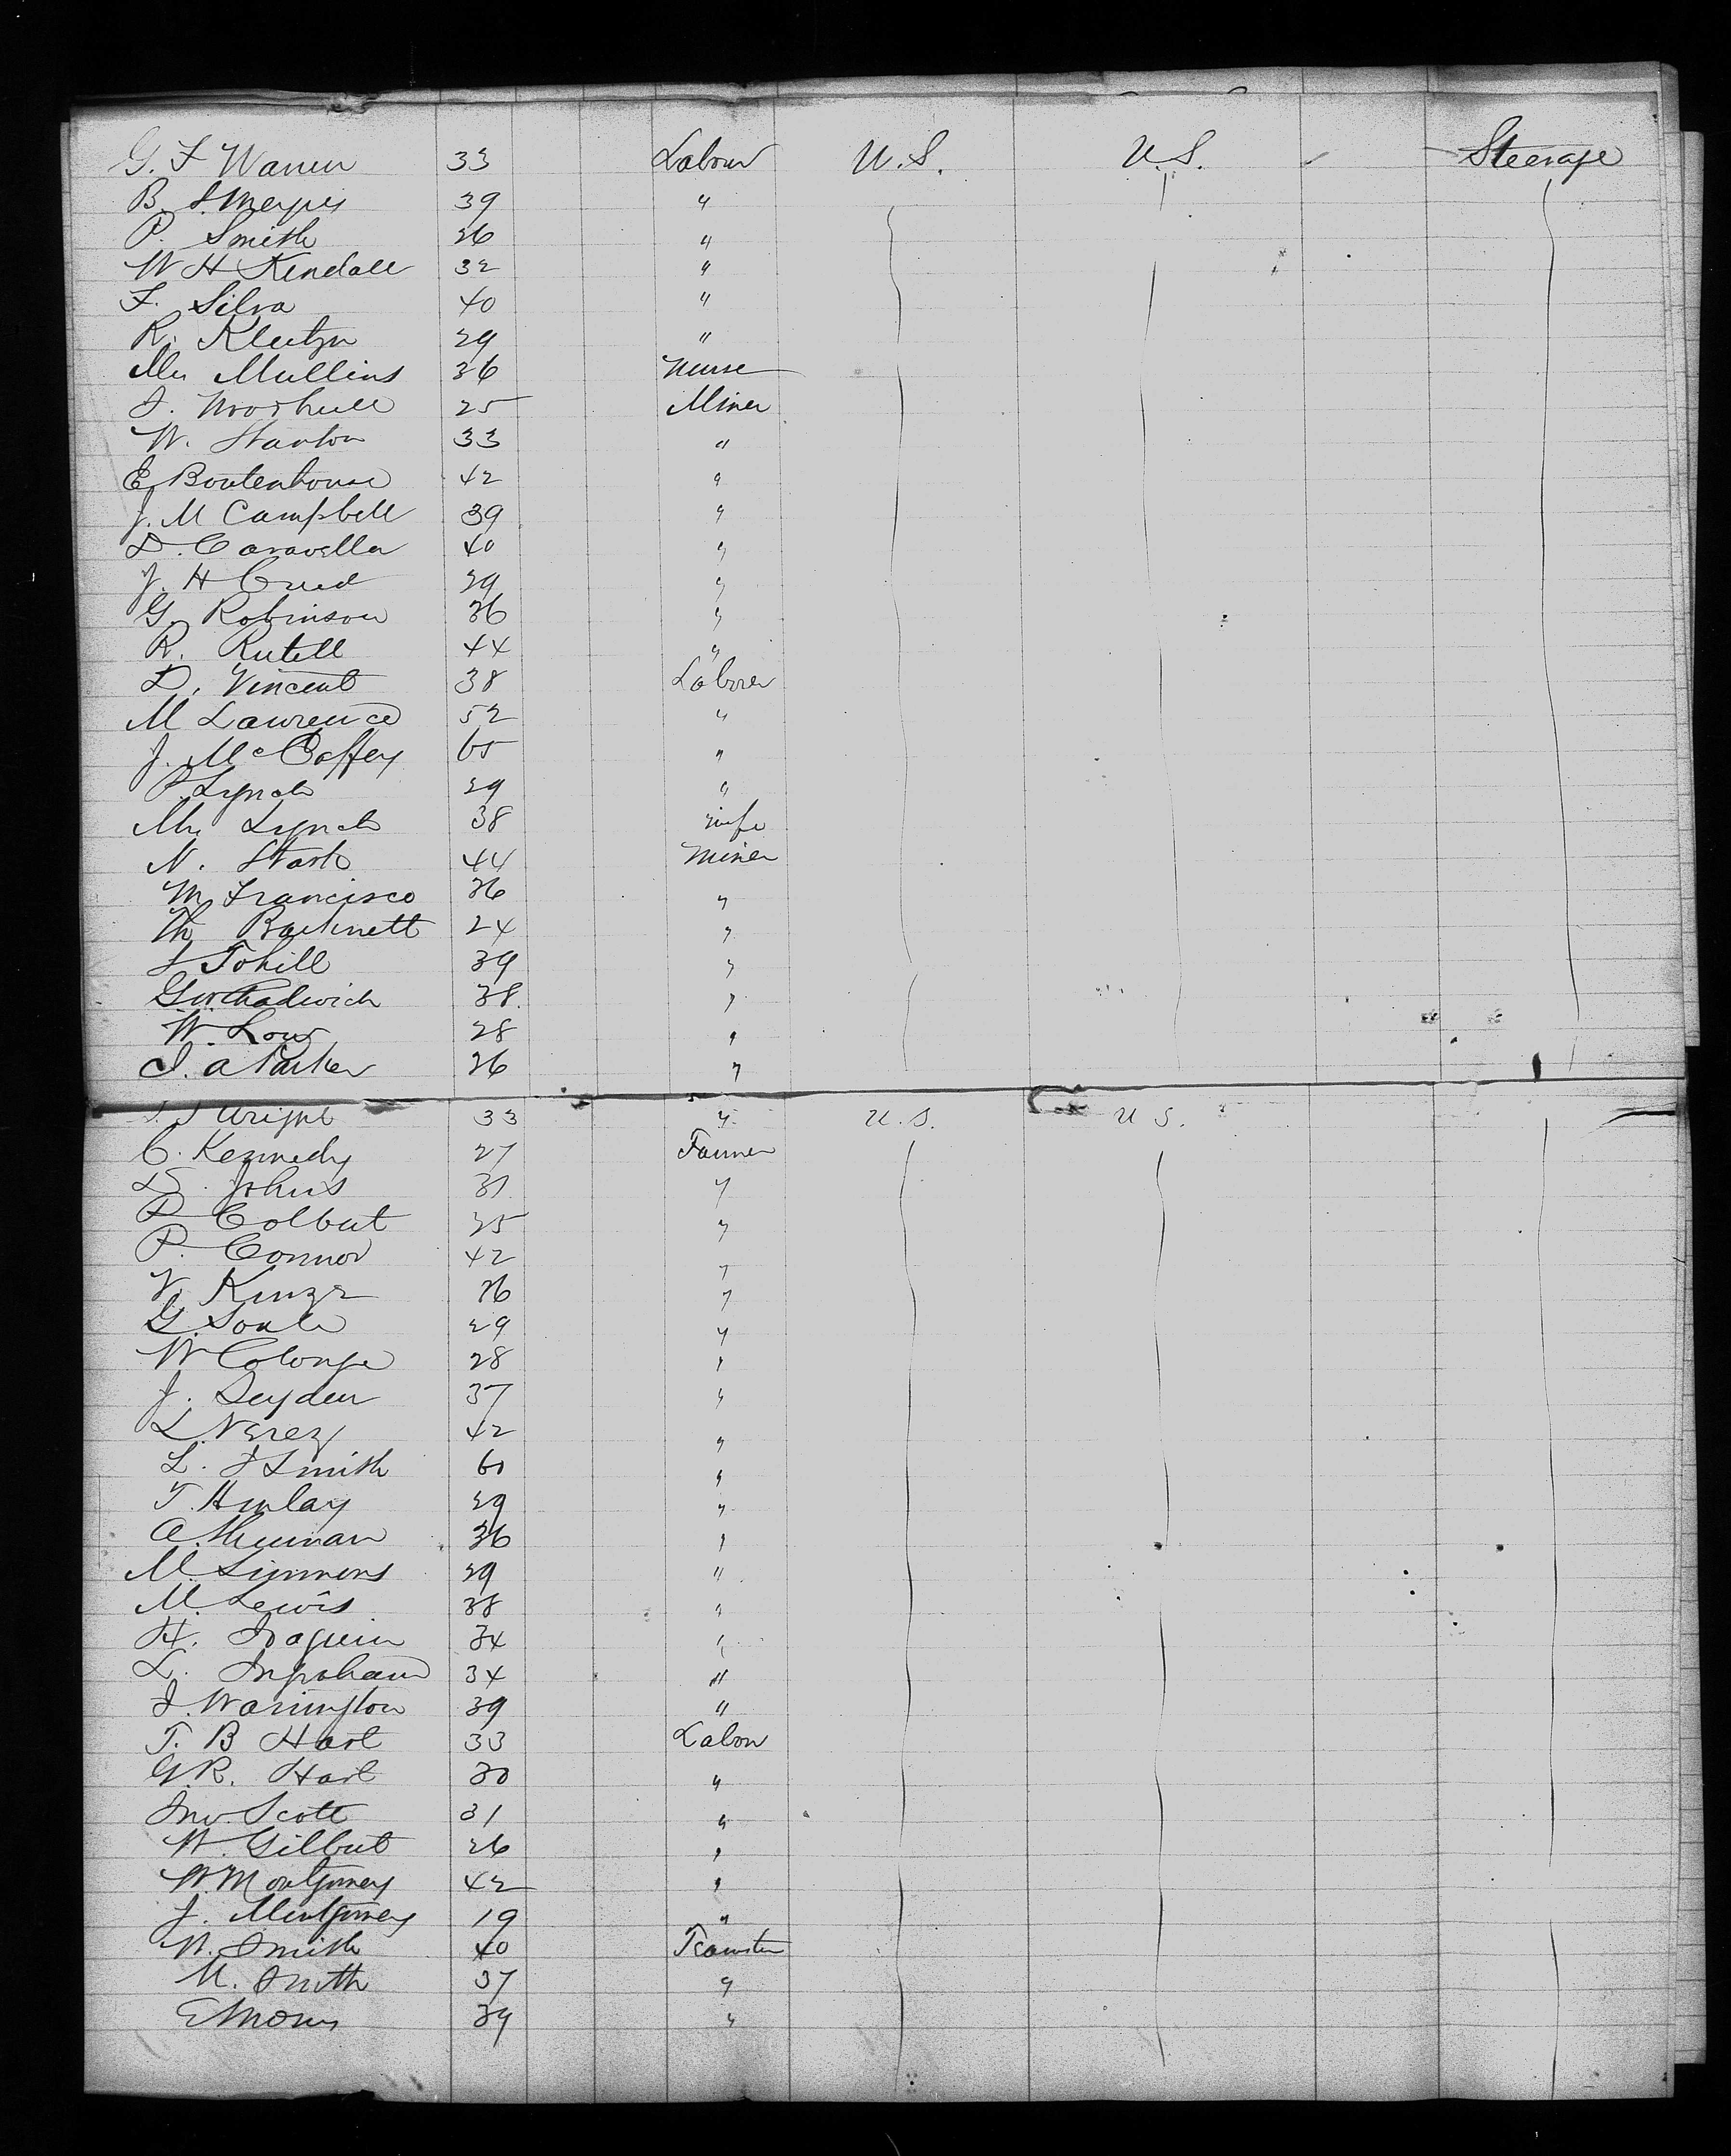 G. F Warren 33 Labour U.S. U.S. Steerage
B. S. 39 "
P. Smith 26 "
W H Kendall 32 "
F. Silva 40 "
R. 29 "
Mrs Mullins 36 Nurse
J. Woodhull 25 Miner
W. Stanton 33 "
E Boutenhouse 42 "
J. M Campbell 39 "
D. Caravella 40 "
J. H Creed 29 "
G. Robinson 36 "
R. Rutell 44 "
D. Vincent 38 Laborer
M Lawrence 52 "
J. McCaffey 65 "
P. Lynch 29 "
Mrs Lynch 38 wife
N. Stark 44 Miner
M Francisco 36 "
Th 24 "
J Tohill 39 "
G W Chadwick 38 "
W. Low 28 "
J. A Parker 26 "
Wright 33 " U.S. U S.
C. Kennedy 27 Farmer
D. Johns 31 "
P Colbert 35 "
P. Connor 42 "
V. 36 "
G. Soule 29 "
W Colonge 28 "
J. Seyden 37 "
L. Narez 42 "
L. J Smith 60 "
T. Hunlay 29 "
A. 36 "
M. Simmons 29 "
M. Lewis 38 "
H. 34 "
L. Ingraham 34 "
J. Warrington 39 "
T. B Hart 33 Labor
G. R. Hart 30 "
Jno. Scott 31 "
W. Gilbert 26 "
W. Montgomery 42 "
J. Montgomery 19 "
W. Smith 40 Teamster
M. Smith 37 "
E Morris 39 "